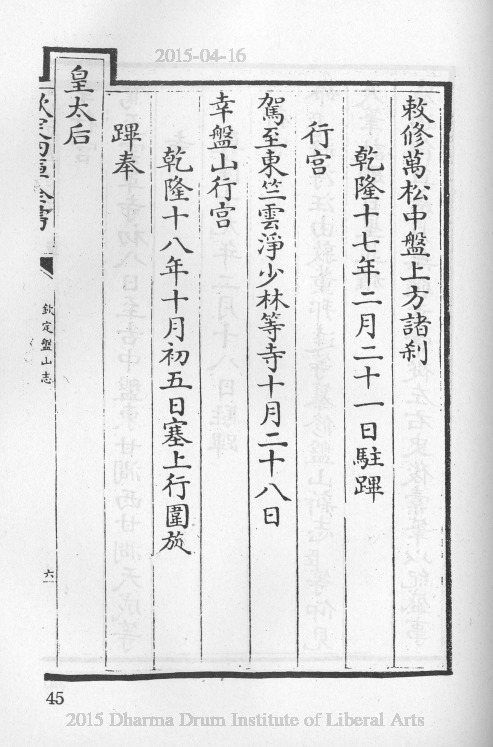 2015-04-16
敕修萬松中盤上方諸刹
乾隆十七年二月二十一日駐蹕
行宫
駕至東竺雲淨少林等寺十月二十八日
幸盤山行宫
乾隆十八年十月初五日塞上行圍旋
蹕奉
皇太后
欽定四庫全書
欽定盤山志
六
45
2015 Dharma Drum Institute of Liberal Arts